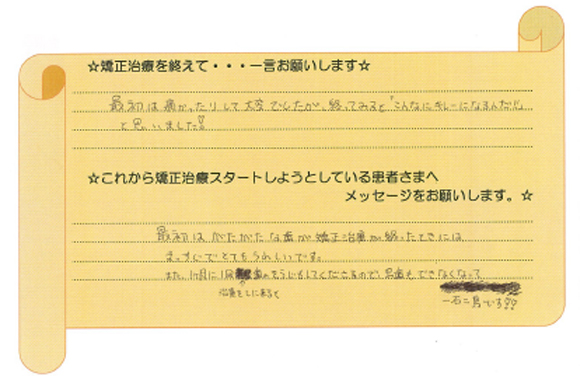 ☆矯正治療を終えて・・・一言お願いします☆
最初は痛かったりして大変でしたが、終ってみると「こんなにキレーになるんだ!」
と思いました!
☆これから矯正治療スタートしようとしている患者さまへ
メッセージをお願いします。☆
最初はがたがたな歯が矯正治療が終ったときには
まっすぐでとてもうれしいです。
また、1ヶ月に1回歯のそうじもしてくださるので、虫歯もできなくなって
治療をしに来ると
一石二鳥です!!